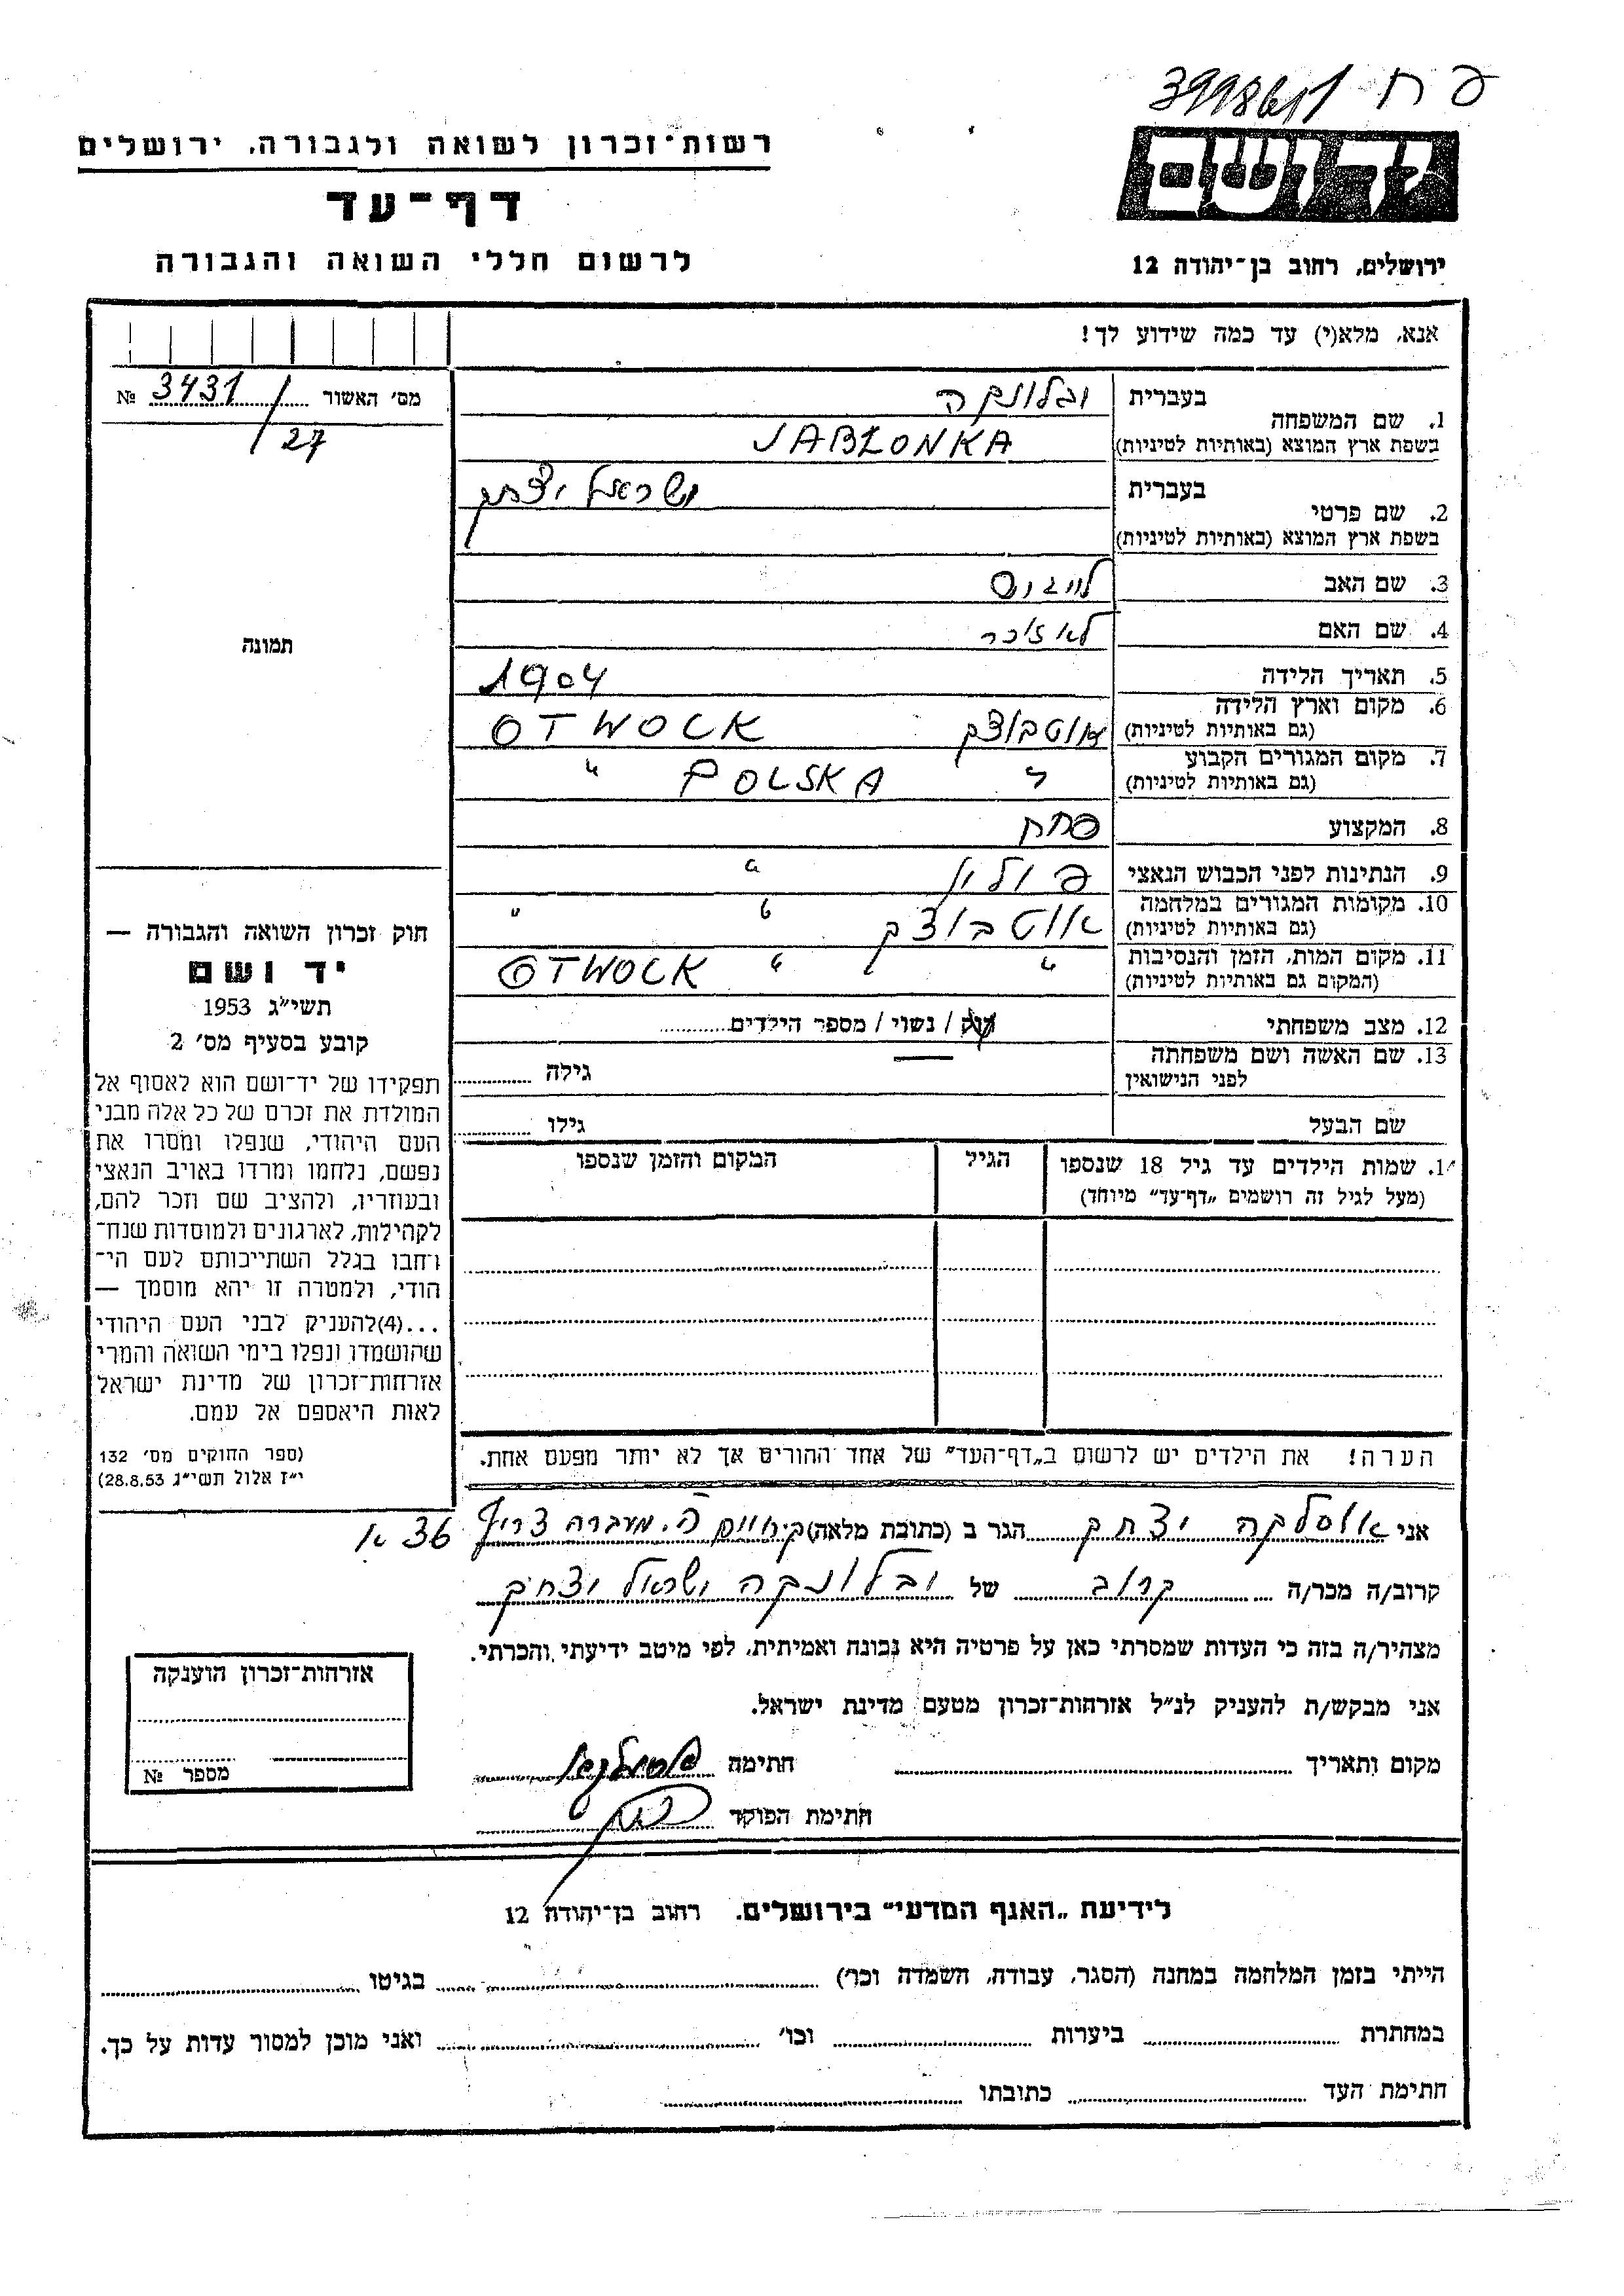 פ ח
יד ושם
רשות־זכרון לשואה ולגבורה, ירושלים
דף־עד
לרשום חללי השואה והגבורה
ירושלים, רחוב בן־יהודה 12
אנא, מלא(י) עד כמה שידוע לך!
מס' האשור 3431 №
27
1. שם המשפחה בעברית יבלונקה
בשפת ארץ המוצא (באותיות לטיניות) JABŁONKA
2. שם פרטי בעברית ישראל יצחק
בשפת ארץ המוצא (באותיות לטיניות)
3. שם האב לייבוס
4. שם האם לא זוכר
5. תאריך הלידה 1904
6. מקום וארץ הלידה אוטבוצק OTWOCK
(גם באותיות לטיניות)
7. מקום המגורים הקבוע " POLSKA "
(גם באותיות לטיניות)
8. המקצוע פחח
9. הנתינות לפני הכבוש הנאצי פולין "
10. מקומות המגורים במלחמה אוטבוצק " "
(גם באותיות לטיניות)
11. מקום המות, הזמן והנסיבות " " OTWOCK
(המקום גם באותיות לטיניות)
12. מצב משפחתי רוק / נשוי / מספר הילדים
13. שם האשה ושם משפחתה לפני הנישואין גילה
שם הבעל גילו
שמות הילדים עד גיל 18 שנספו הגיל המקום והזמן שנספו
(מעל לגיל זה רושמים „דף־עד" מיוחד)
הערה! את הילדים יש לרשום ב„דף־העד" של אחד ההורים אך לא יותר מפעם אחת.
תמונה
חוק זכרון השואה והגבורה —
יד ושם
תשי"ג 1953
קובע בסעיף מס' 2
תפקידו של יד־ושם הוא לאסוף אל
המולדת את זכרם של כל אלה מבני
העם היהודי, שנפלו ומסרו את
נפשם, נלחמו ומרדו באויב הנאצי
ובעוזריו, ולהציב שם וזכר להם,
לקהילות, לארגונים ולמוסדות שנח־
רחבו בגלל השתייכותם לעם הי־
הודי, ולמטרה זו יהא מוסמך —
...(4)להעניק לבני העם היהודי
שהושמדו ונפלו בימי השואה והמרי
אזרחות־זכרון של מדינת ישראל
לאות היאספם אל עמם.
(ספר החוקים מס' 132
י"ז אלול תשי"ג 28.8.53)
אני אוסלקה יצחק הגר ב (כתובת מלאה) ק. חיים ה. מעברה צריף 36 א
קרוב/ה מכר/ה קרוב של יבלונקה ישראל יצחק
מצהיר/ה בזה כי העדות שמסרתי כאן על פרטיה היא נכונה ואמיתית, לפי מיטב ידיעתי והכרתי.
אני מבקש/ת להעניק לנ"ל אזרחות־זכרון מטעם מדינת ישראל.
מקום ותאריך חתימה
חתימת הפוקד
אזרחות־זכרון הוענקה
מספר №
לידיעת „האגף המדעי" בירושלים. רחוב בן־יהודה 12
הייתי בזמן המלחמה במחנה (הסגר, עבודה, השמדה וכר') בגיטו
במחתרת ביערות וכו' ואני מוכן למסור עדות על כך.
חתימת העד כתובתו